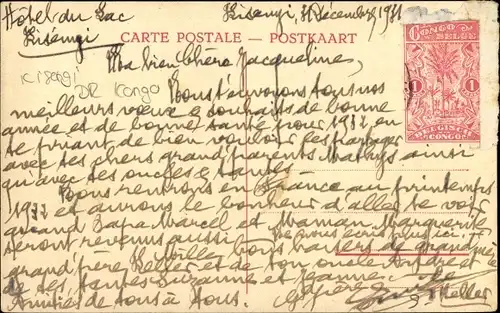 Hôtel du Lac
Kisenyi
Kisenyi, 31 Décembre, 1931
CARTE POSTALE - POSTKAART
Ma bien chère Jacqueline,
Kisengi
DR Kongo
CONGO BELGE
1 1
BELGISCH CONGO
Nous t'envoyons tous nos
meilleurs vœux & souhaits de bonne
année et de bonne santé pour 1932 en
te priant de bien vouloir les partager
avec tes chers grand parents Mathys ainsi
qu'avec tes oncles & tantes.
Nous rentrons en France au printemps
1932 et aurons le bonheur d'aller te voir
quand Papa Marcel et Maman Marguerite
seront revenus aussi
Meilleurs bons baisers de grand mère
grand'père Keller et de ton oncle André et
de tes tantes Suzanne et Jeanne.
Amitiés de tous à tous.
Gd père
Keller